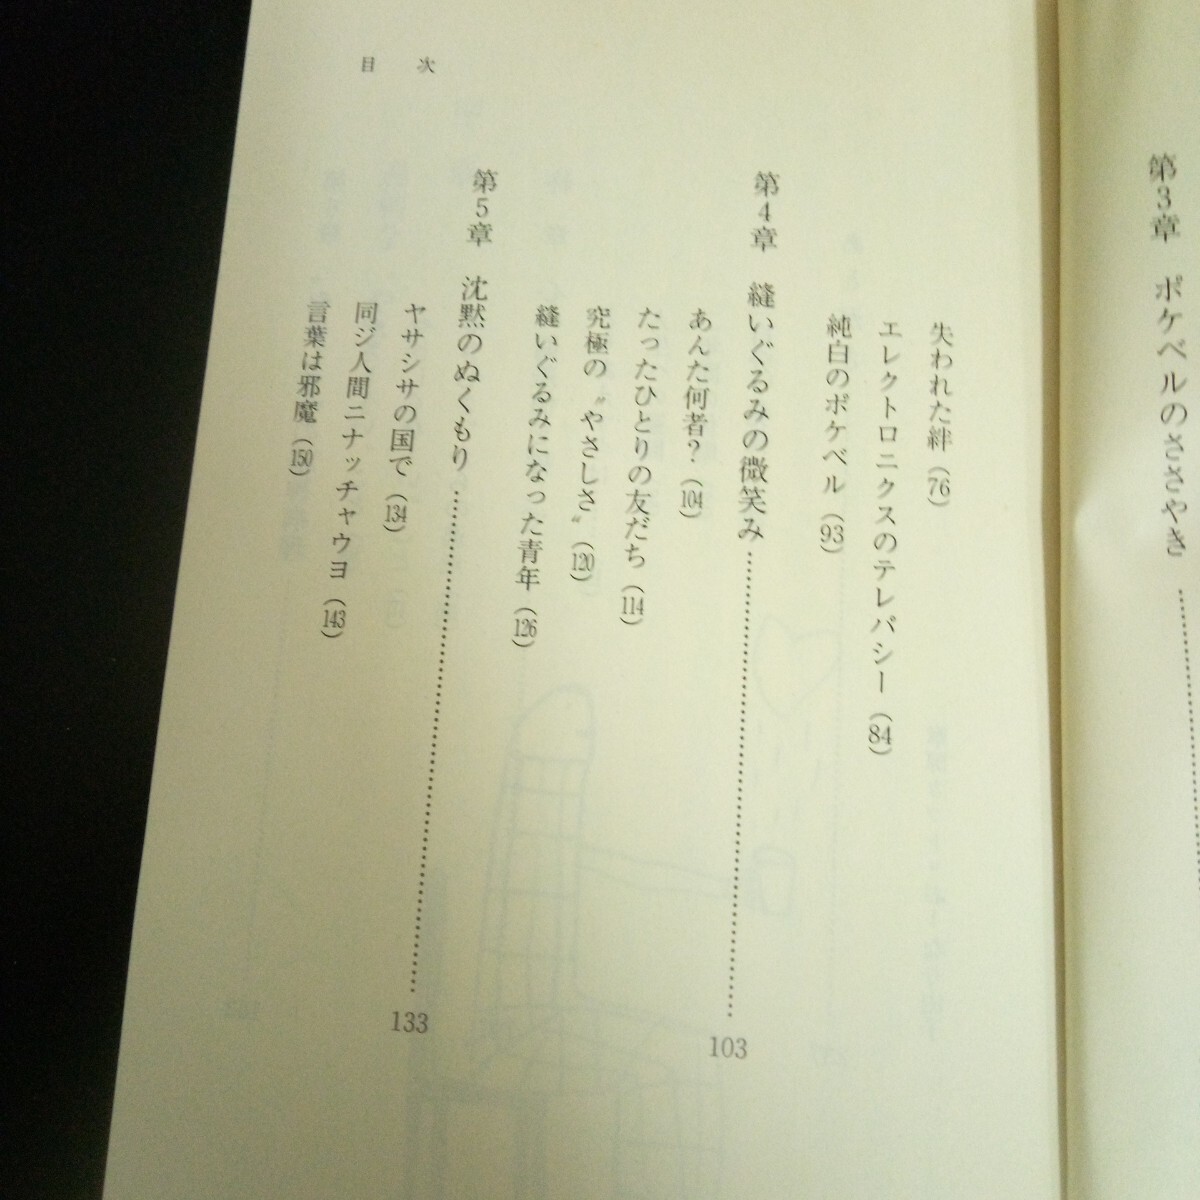 第3章　ポケベルのささやき
目　次
失われた絆（76）
エレクトロニクスのテレパシー（84）
純白のポケベル（93）
第4章　縫いぐるみの微笑み……………………103
あんた何者？（104）
たったひとりの友だち（114）
究極の〝やさしさ〟（120）
縫いぐるみになった青年（126）
第5章　沈黙のぬくもり……………………133
ヤサシサの国で（134）
同ジ人間ニナッチャウヨ（143）
言葉は邪魔（150）